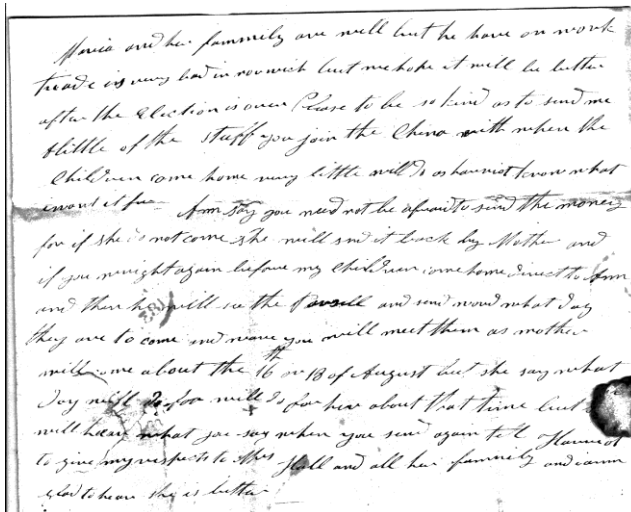 Maria and her fammily are well but he have on work
treade is very bad in norwich but we hope it will be better
after the Election is over Please to be so kind as to send me
alittle of the stuff you join the China with when the
Children come home very little will do as
i want it for Ann say you need not be afraid to send the money
for if she is not come she will send it back by Mother and
if you wright again before my Children come home direct to Ann
and then he will see the and send word what day
they are to come and were you will meet them as mother
will come about the 16th or 18 of August but she say what
day will do for will do for her about that time but
will hear what you say when you send again tell
to give my respects to Mrs Hall and all her fammily and
glad to hear she is better